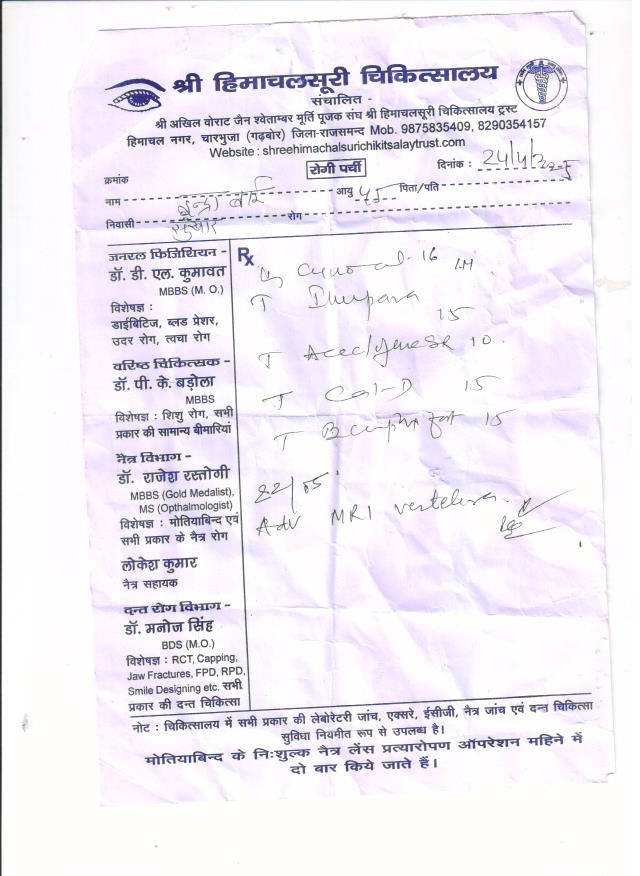 श्री हिमाचलसूरी चिकित्सालय
संचालित -
श्री अखिल वोराट जैन श्वेताम्बर मूर्ति पूजक संघ श्री हिमाचलसूरी चिकित्सालय ट्रस्ट
हिमाचल नगर, चारभुजा (गढ़बोर) जिला-राजसमन्द Mob. 9875835409, 8290354157
Website : shreehimachalsurichikitsalaytrust.com
रोगी पर्ची
क्रमांक
दिनांक : 24/4/
नाम बाई आयु 45 पिता/पति
निवासी रोग
जनरल फिजिशियन -
डॉ. डी. एल. कुमावत
MBBS (M. O.)
विशेषज्ञ :
डाईबिटिज, ब्लड प्रेशर,
उदर रोग, त्वचा रोग
वरिष्ठ चिकित्सक -
डॉ. पी. के. बड़ोला
MBBS
विशेषज्ञ : शिशु रोग, सभी
प्रकार की सामान्य बीमारियां
नैत्र विभाग -
डॉ. राजेश रस्तोगी
MBBS (Gold Medalist),
MS (Opthalmologist)
विशेषज्ञ : मोतियाबिन्द एवं
सभी प्रकार के नैत्र रोग
लोकेश कुमार
नैत्र सहायक
दन्त रोग विभाग -
डॉ. मनोज सिंह
BDS (M.O.)
विशेषज्ञ : RCT, Capping,
Jaw Fractures, FPD, RPD,
Smile Designing etc. सभी
प्रकार की दन्त चिकित्सा
Rx
IM
T
15
T 10
T Cal-D 15
T 15
22/05
Adv MRI
नोट : चिकित्सालय में सभी प्रकार की लेबोरेटरी जांच, एक्सरे, ईसीजी, नैत्र जांच एवं दन्त चिकित्सा
सुविधा नियमीत रूप से उपलब्ध है।
मोतियाबिन्द के निःशुल्क नैत्र लेंस प्रत्यारोपण ऑपरेशन महिने में
दो बार किये जाते हैं।